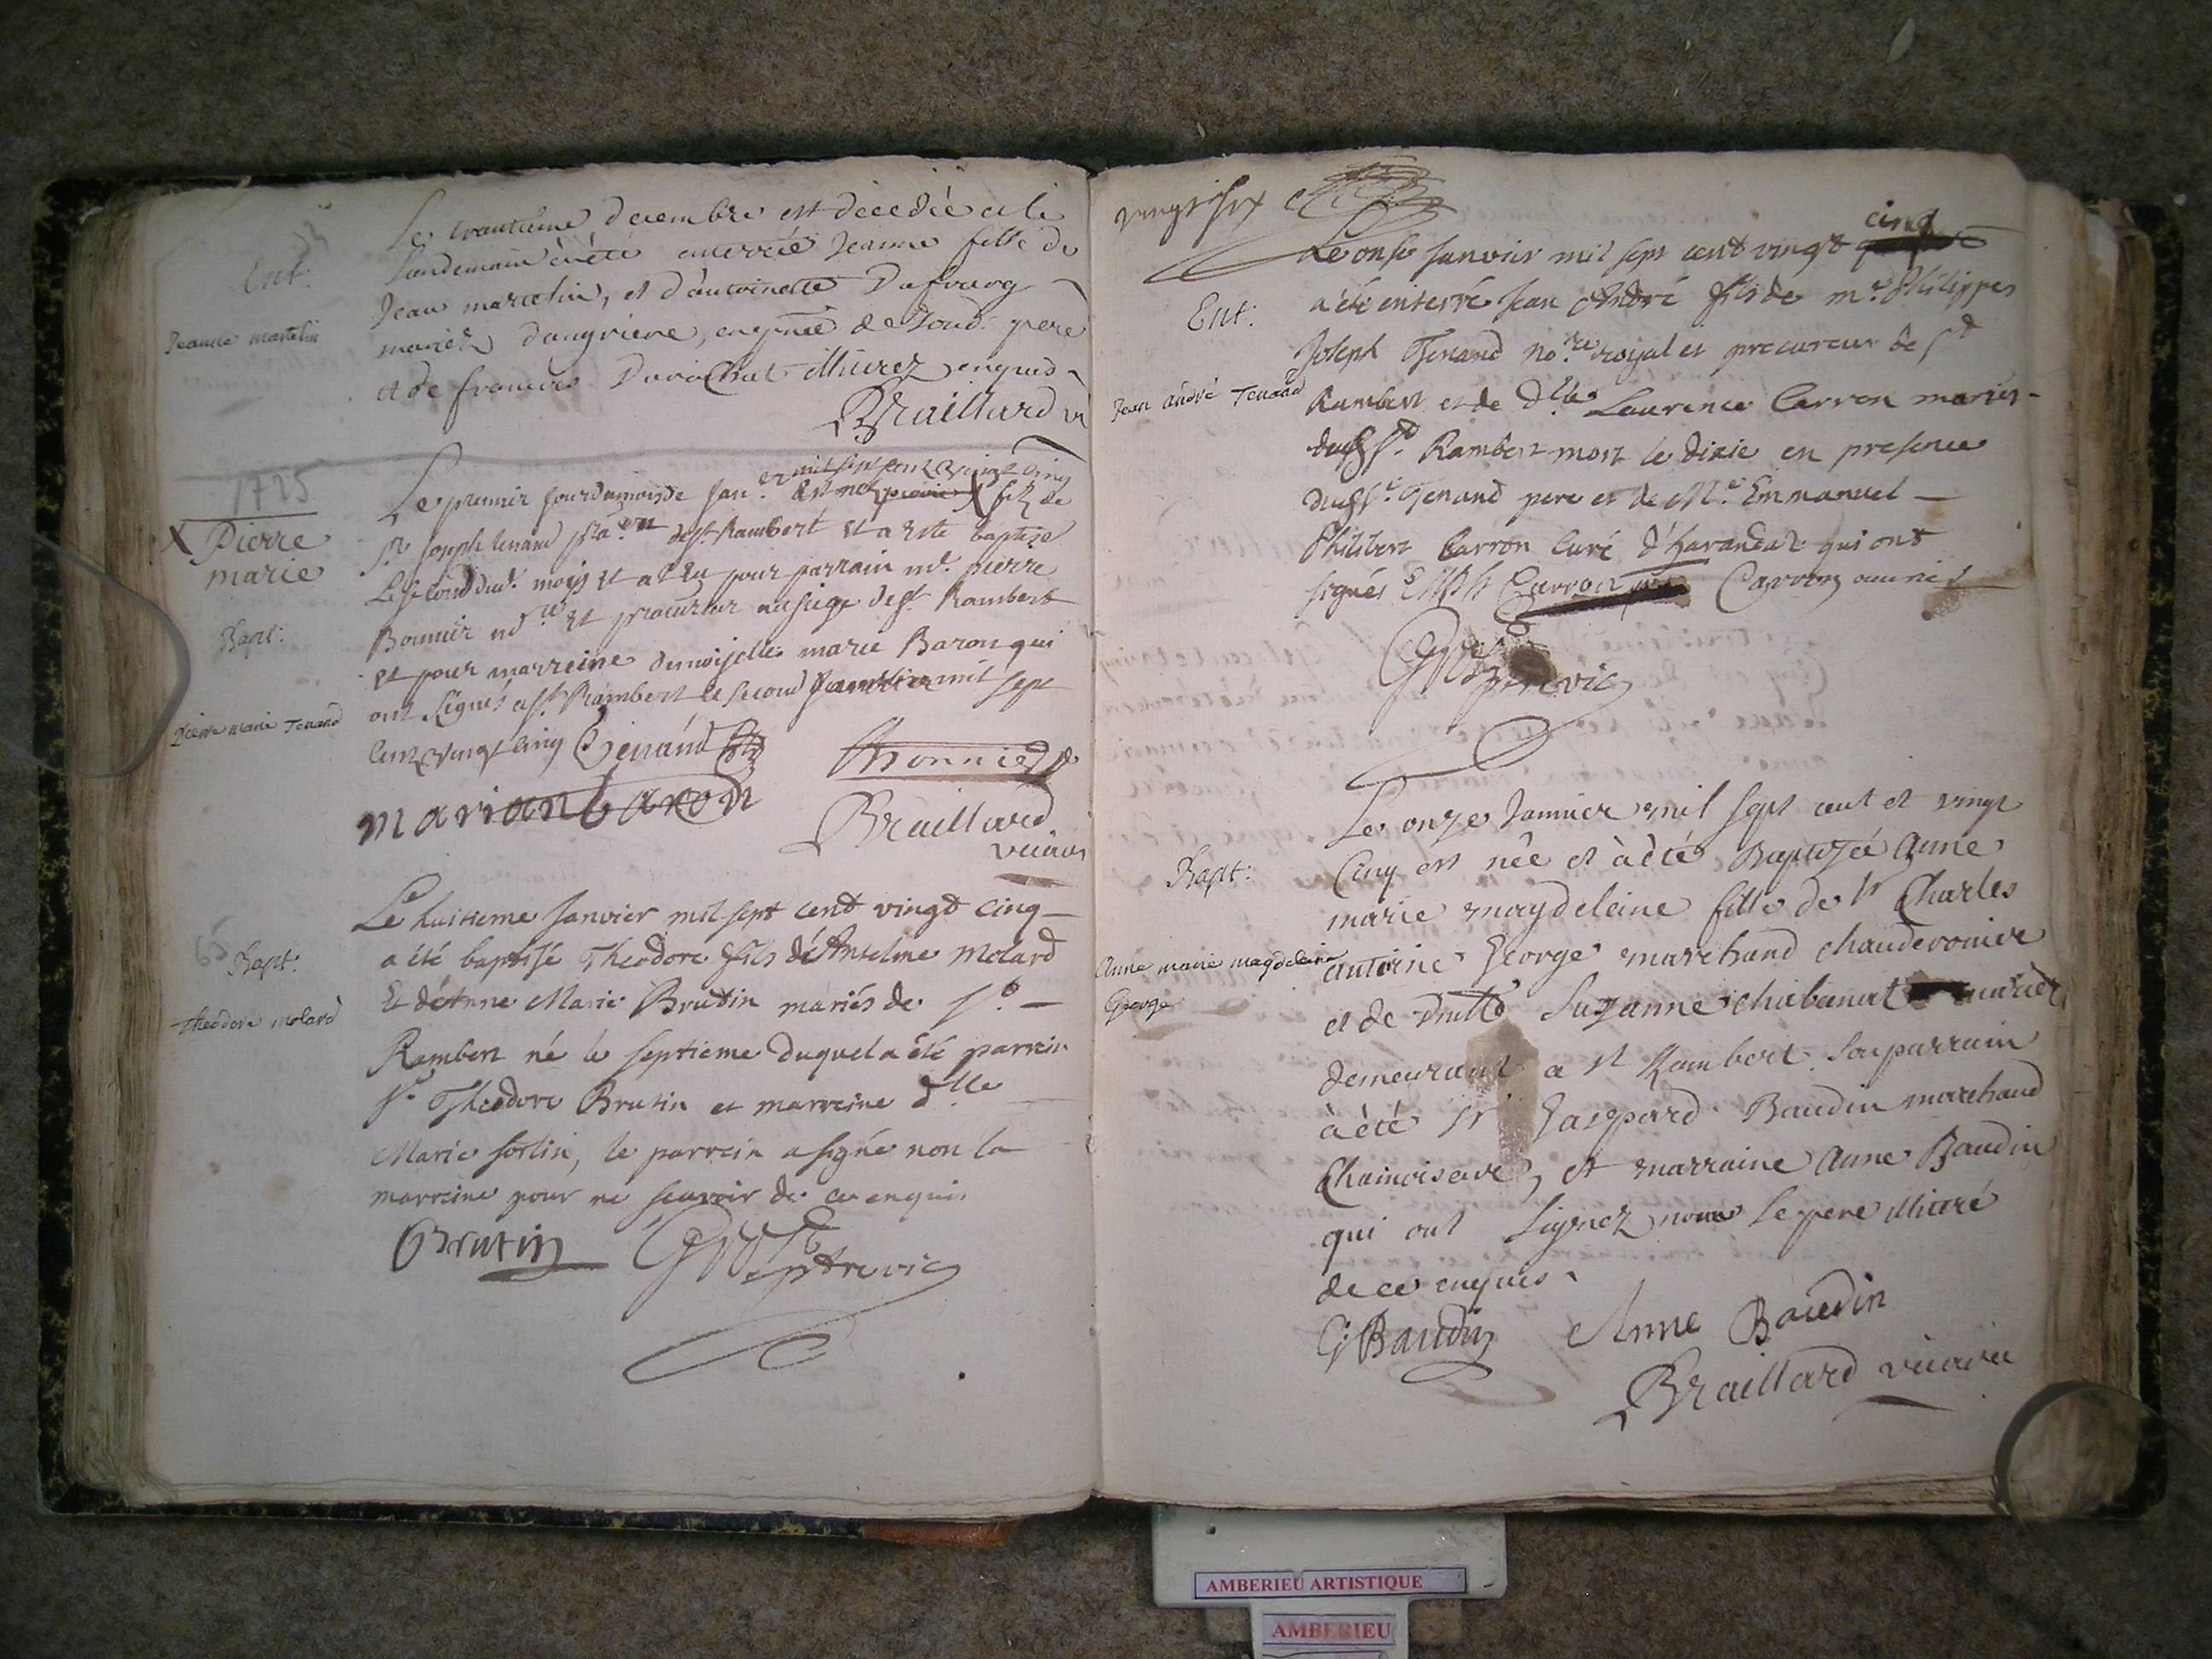 Ent.
Jeanne martelin
Le trantieme decembre est décedée et le
Landemain à été enterrée Jeanne fille de
Jean martelin, et d'antoinette Dufourg
mariez d'angrieve, en pñce de Loud. pere
et de francois Durochat illitirez enquis
BRaillard
1725
X Pierre
marie
Bapt:
Pierre Marie Tenand
mil sept cent vingt cinq
Le premier jour du mois de Jan.er est né X fils de
Sr. Joseph tenand de st. Rambert et a esté baptisé
Le second dud. moys et a eu pour parrain md. pierre
Bonnier et procureur au siege de st. Rambert
et pour marreine demoiselle marie Baron qui
ont Signés a st. Rambert le second Janvier mil sept
cent vingt cinq Genand Bonnier
marian baron
BRaillard
vicaire
Bapt.
Theodore molard
Le huitieme Janvier mil sept cent vingt cinq
a été baptisé Theodore fils d'Anselme Molard
Et d'Anne Marie Brutin mariés de St.
Rambert né le septieme duquel a été parrein
Sr. Theodore Brutin et marreine dlle
Marie sorlin, le parrein a signé non la
marreine pour ne scavoir de ce enquis
Brutin
ptre vic
vingt six
Ent:
Jean André Tenand
cinq
Le onse Janvier mil sept cent vingt
a été enterré Jean André fils de mr. Philippes
Joseph Tenand no.re royal et procureur de St
Rambert et de Dlle Laurence Carron mariés
dud St. Rambert mort le dixie en presence
dud Sr. Tenand pere et de Mre. Emmanuel
Philibert Carron Curé d'Harandat qui ont
signés Carron Carron
ptre vic
Bapt:
Anne marie magdeleine
George
Le onze Janvier mil sept cent et vingt
Cinq est née et à été Baptizée Anne
marie magdeleine fille de Sr Charles
antoine George marchand chauderonier
et de Suzanne Chabanat mariez
demeurant a St Rambert. Son parrain
à été Sr Gaspard Baudin marchand
Chamoiseur, et marraine Anne Baudin
qui ont Signez non le pere illitiré
de ce enquis
G Baudin Anne Baudin
BRaillard vicaire
AMBERIEU ARTISTIQUE
AMBERIEU